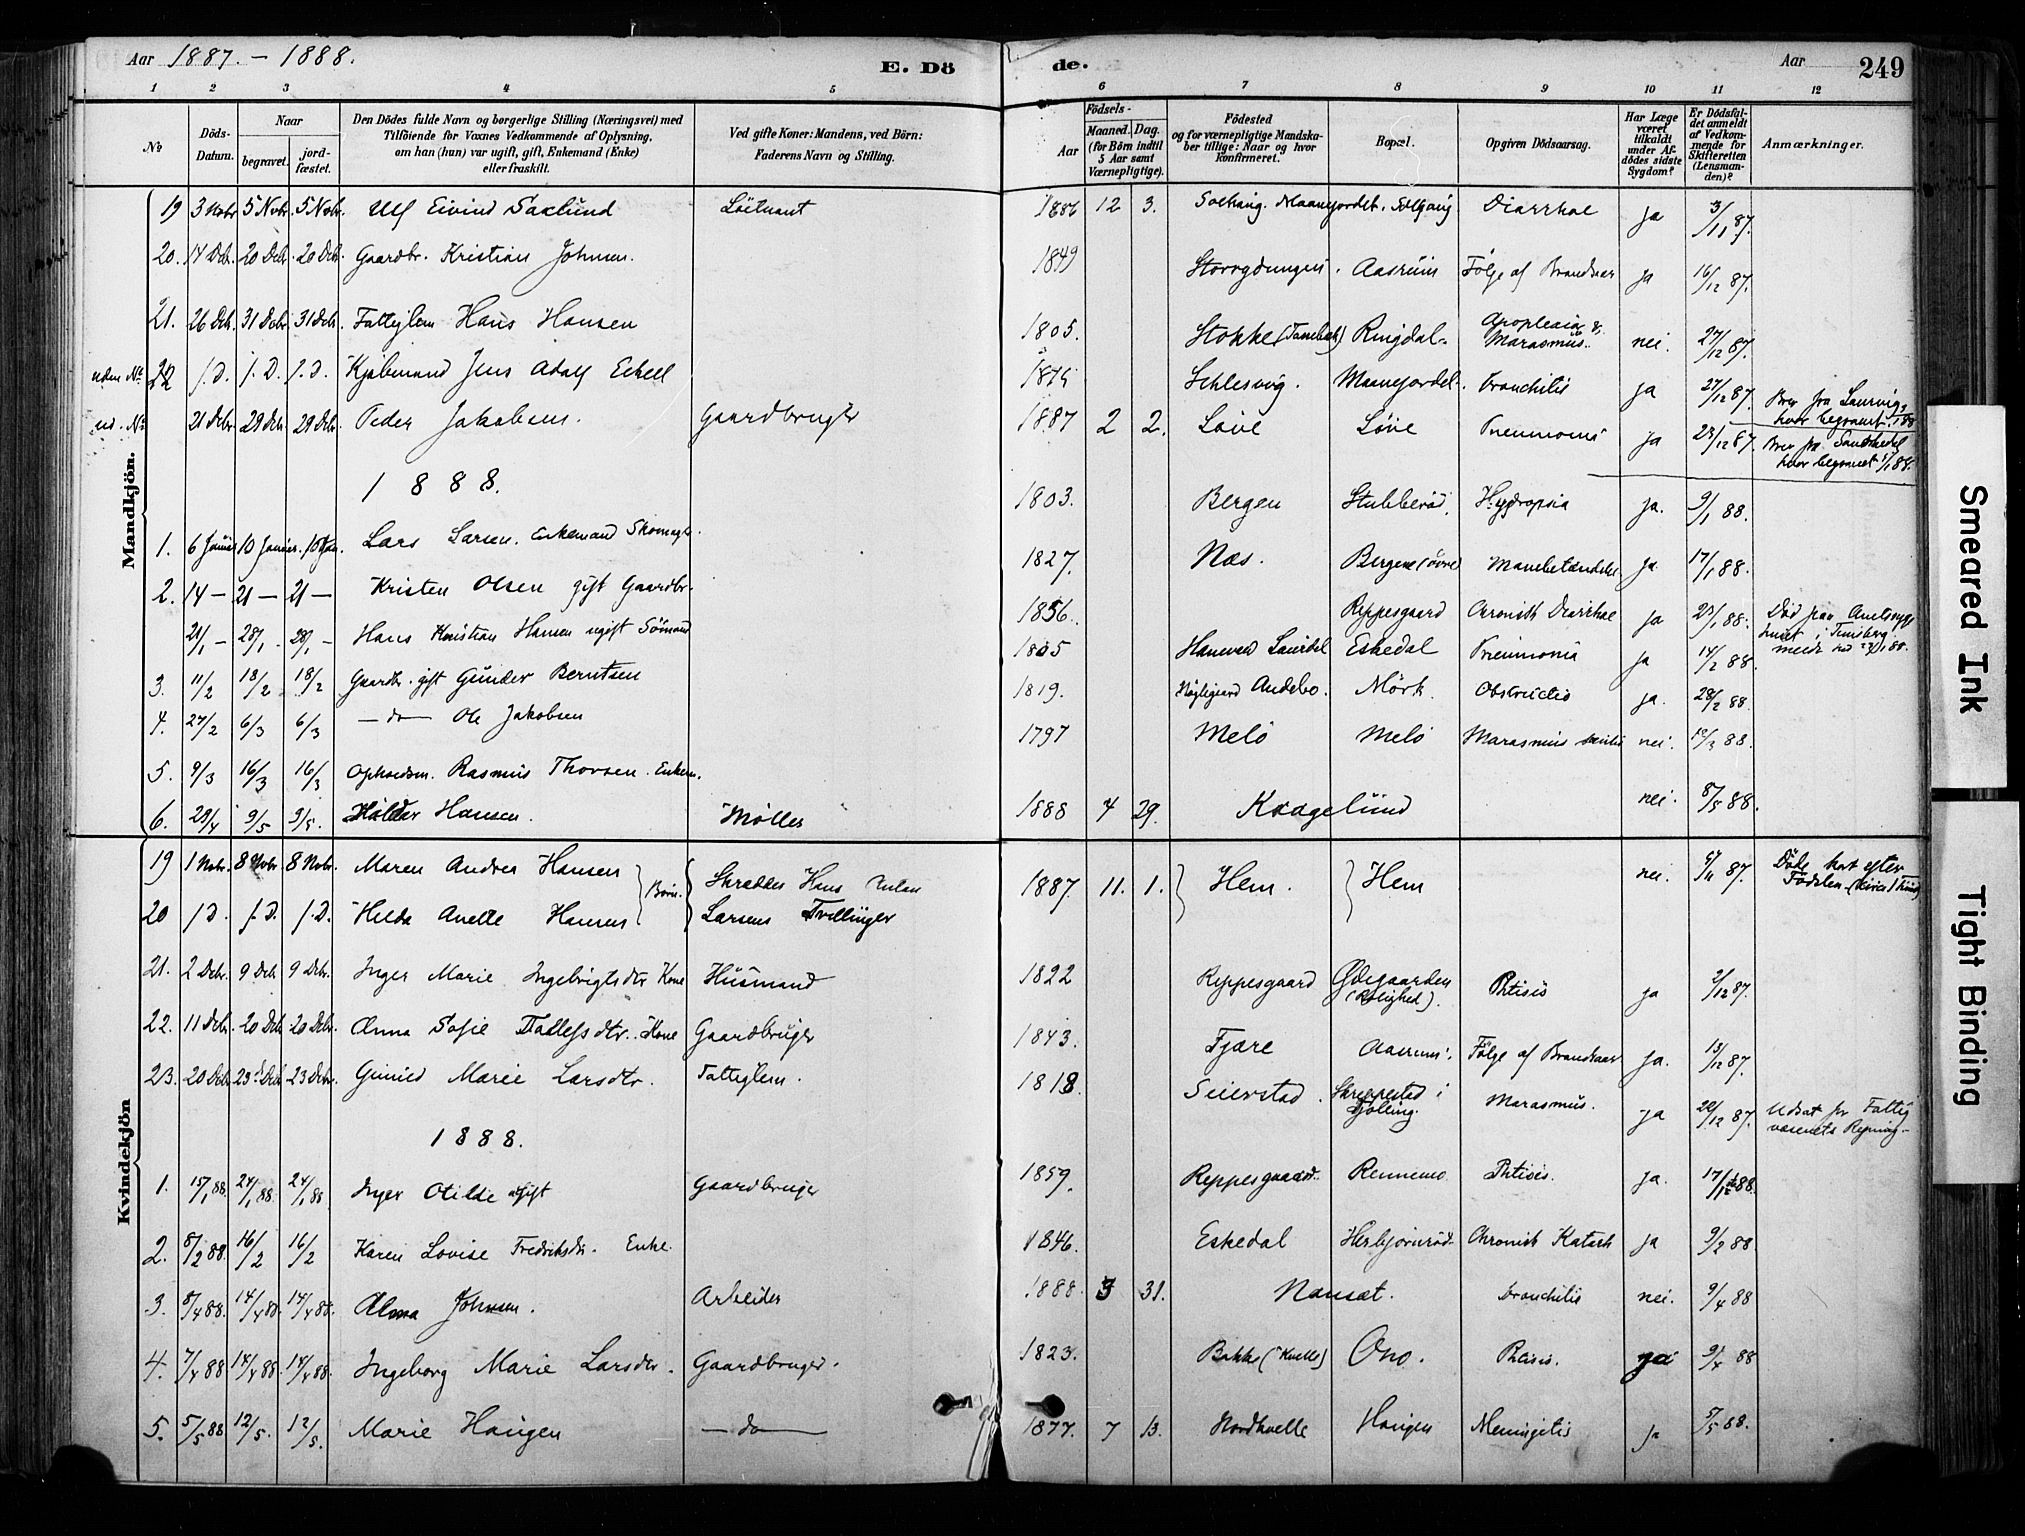 Aar 1887. - 1888.
E. Dö
de.
Aar
249
1 2 3 4 5 6 7 8 9 10 11 12
No
Döds-Datum.
Naar
begravet.
jord-fæstet.
Den Dödes fulde Navn og borgerlige Stilling (Næringsvei) med
Tilföiende for Voxnes Vedkommende af Oplysning,
om han (hun) var ugift, gift, Enkemand (Enke)
eller fraskilt.
Ved gifte Koner: Mandens, ved Börn:
Faderens Navn og Stilling.
Födsels-
Aar
Maaned. Dag.
(for Börn indtil
5 Aar samt
Værnepligtige).
Födested
og for værnepligtige Mandska-
ber tillige: Naar og hvor
konfirmeret.
Bopæl.
Opgiven Dödsaarsag.
Har Læge
været
tilkaldt
under Af-
dödes sidste
Sygdom?
Er Dödsfal-
det anmeldt
af Vedkom-
mende for
Skifteretten
(Lensman-
den)?
Anmærkninger.
Mandkjön.
19 3 Nobr 5 Nobr. 5 Nobr. Ulf Eivind Saxlund Löitnant 1886 12 3. Solhaug. Maanejordet. Solhaug Diarrhoe ja 3/11 87.
20. 14 Dcbr. 20 Dcbr. 20 Dcbr. Gaardbr. Kristian Johnsen. 1849 Aasrum Fölge af Brandsaar ja 16/12 87.
21. 26 Dcbr. 31 Dcbr. 31 Dcbr. Fattiglem Hans Hansen 1805. Stokke Ringdal. Apoplexia & Marasmus. nei. 27/12 87.
uden No 22 s. D. s. D. s. D. Kjøbmand Jens Adolf Eckell Schlesvig. Maanejordet. Bronchitis ja 27/12 87. Brev fra Laurvig, hvor begravet.
ud. No 21 Dcbr 29 Dcbr. 29 Dcbr. Peder Jakobsen. Gaardbruger 1887 2 2. Löve Löve Pneumoni ja 23/12 87. Brev fra hvor begravet
1888.
1. 6 Januar 10 Januar. 10 Jan. Lars Larsen. Enkemand Skomager. 1803. Bergen Stubberöd. Hydropsia ja. 9/1 88.
2. 14 — 21 — 21 — Kristen Olsen gift Gaardbr. 1827. Næs. Bergene (övre) Mavebetændelse ja 17/1 88.
21/1 — 28/1. 28/1 — Hans Kristian Hansen ugift Sömand 1856. Reppesgaard Chronisk Diarrhoe ja 23/1 88. Död paa Amtssyge huset i Tönsberg.
3. 11/2 18/2 18/2 Gaardbr. gift Gunder Berntsen Eskedal Pneumonia ja 14/2 88.
4. 27/2 6/3 6/3 — do — Ole Jakobsen 1819. Andebo. Mörk. Obstructio ja. 28/2 88.
5. 9/3 16/3 16/3 Opholdsm. Rasmus Thorsen. Enkem. 1797 Melö Melö Marasmus senilis nei. 12/3 88.
6. 29/4 9/5 9/5. Haldor Hansen. Møller 1888 4 29. Kaagelund nei. 8/5 88.
Kvindekjön
19 1 Nobr. 8 Nobr. 8 Nobr. Maren Andrea Hansen } Börn. { Skrædder Hans Julian 1887. 11. 1. } Hem. } Hem nei. 5/11 87. Döde kort efter Födselen
20 s. D. s. D. s. D. Hilda Anette Hansen Larsens Tvillinger
21. 2 Dcbr. 9 Dcbr 9 Dcbr. Inger Marie Ingebrigtsdtr Kone Husmand 1822 Reppesgaard Ödegaarden (Rolighed). Phtisis ja 3/12 87.
22. 11 Dcbr. 20 Dcbr 20 Dcbr. Anna Sofie Tollefsdtr. Kone Gaardbruger 1843. Fjære Aasrum. Fölge af Brandsaar ja. 13/12 87.
23. 20 Dcbr. 23 Dcbr 23 Dcbr. Gunild Marie Larsdtr. Fattiglem. 1818. Seierstad. Skreppestad i Tjölling. Marasmus. ja 20/12 87. Udsat for Fattig væsenets Regning.
1888.
1. 15/1 88. 24/1 88. 24/1 88 Inger Otilde gift Gaardbruger 1859. Reppesgaard. Rennemo Phtisis. ja. 17/1 88.
2. 8/2 88. 16/2 16/2 Karen Lovise Fredriksdtr. Enke. 1846. Eskedal Herbjørnröd Chronisk Katarh ja 9/2 88
3. 8/4 88. 14/4 88. 14/4 88. Alma Johnsen. Arbeider 1888. 3 31. Nanset. Bronchitis nei. 9/4 88
4. 7/4 88 14/4 88 14/4 88. Ingeborg Marie Larsdtr. Gaardbruger. 1823. Bakke (Kvelle) Ono. Phtisis. ja 9/4 88
5. 5/5 88 12/5. 12/5. Marie Haugen — do — 1877. 7 13. Nordkvelle Haugen Meningitis ja 5/5 88.
Smeared Ink
Tight Binding